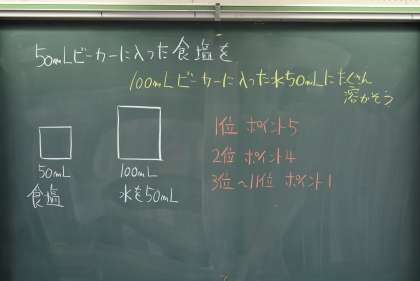 50mLビーカーに入った食塩を
100mLビーカーに入った水50mLにたくさん
溶かそう
50mL
食塩
100mL
水を50mL
1位 ポイント5
2位 ポイント4
3位~11位 ポイント1